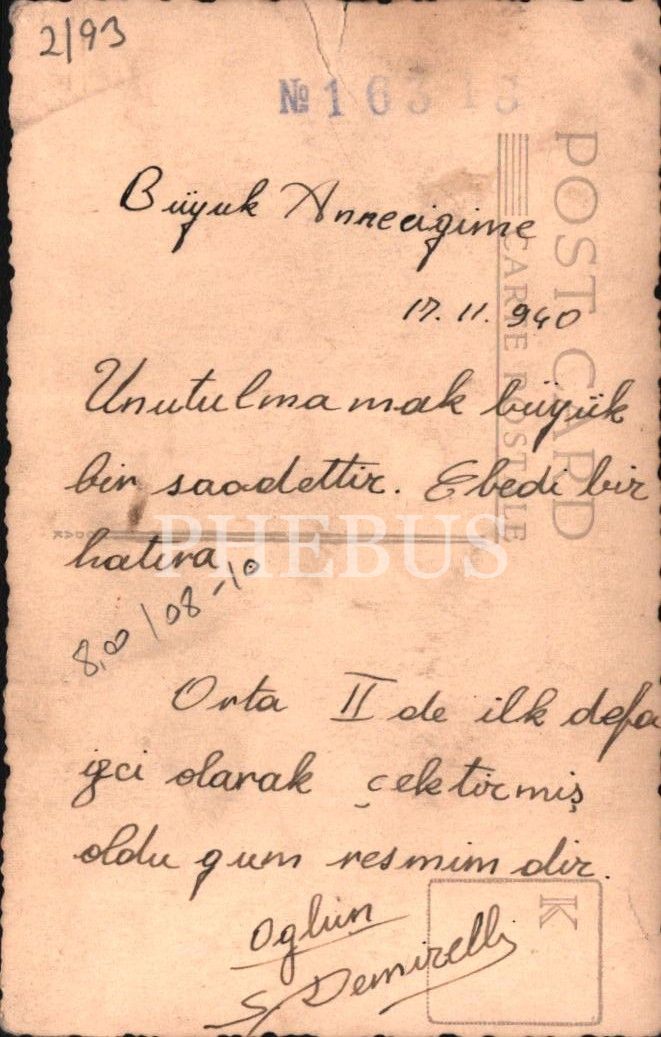 2/93
№ 16313
Büyuk Anneciğime
17.11.940
Unutulmamak büyük
bir saadettir. Ebedi bir
hatıra
8,00/08-10
Orta II de ilk defa
izci olarak çektirmiş
olduğum resmimdir.
Oğlun
S. Demirelli
POST CARD
CARTE POSTALE
PHEBUS
K